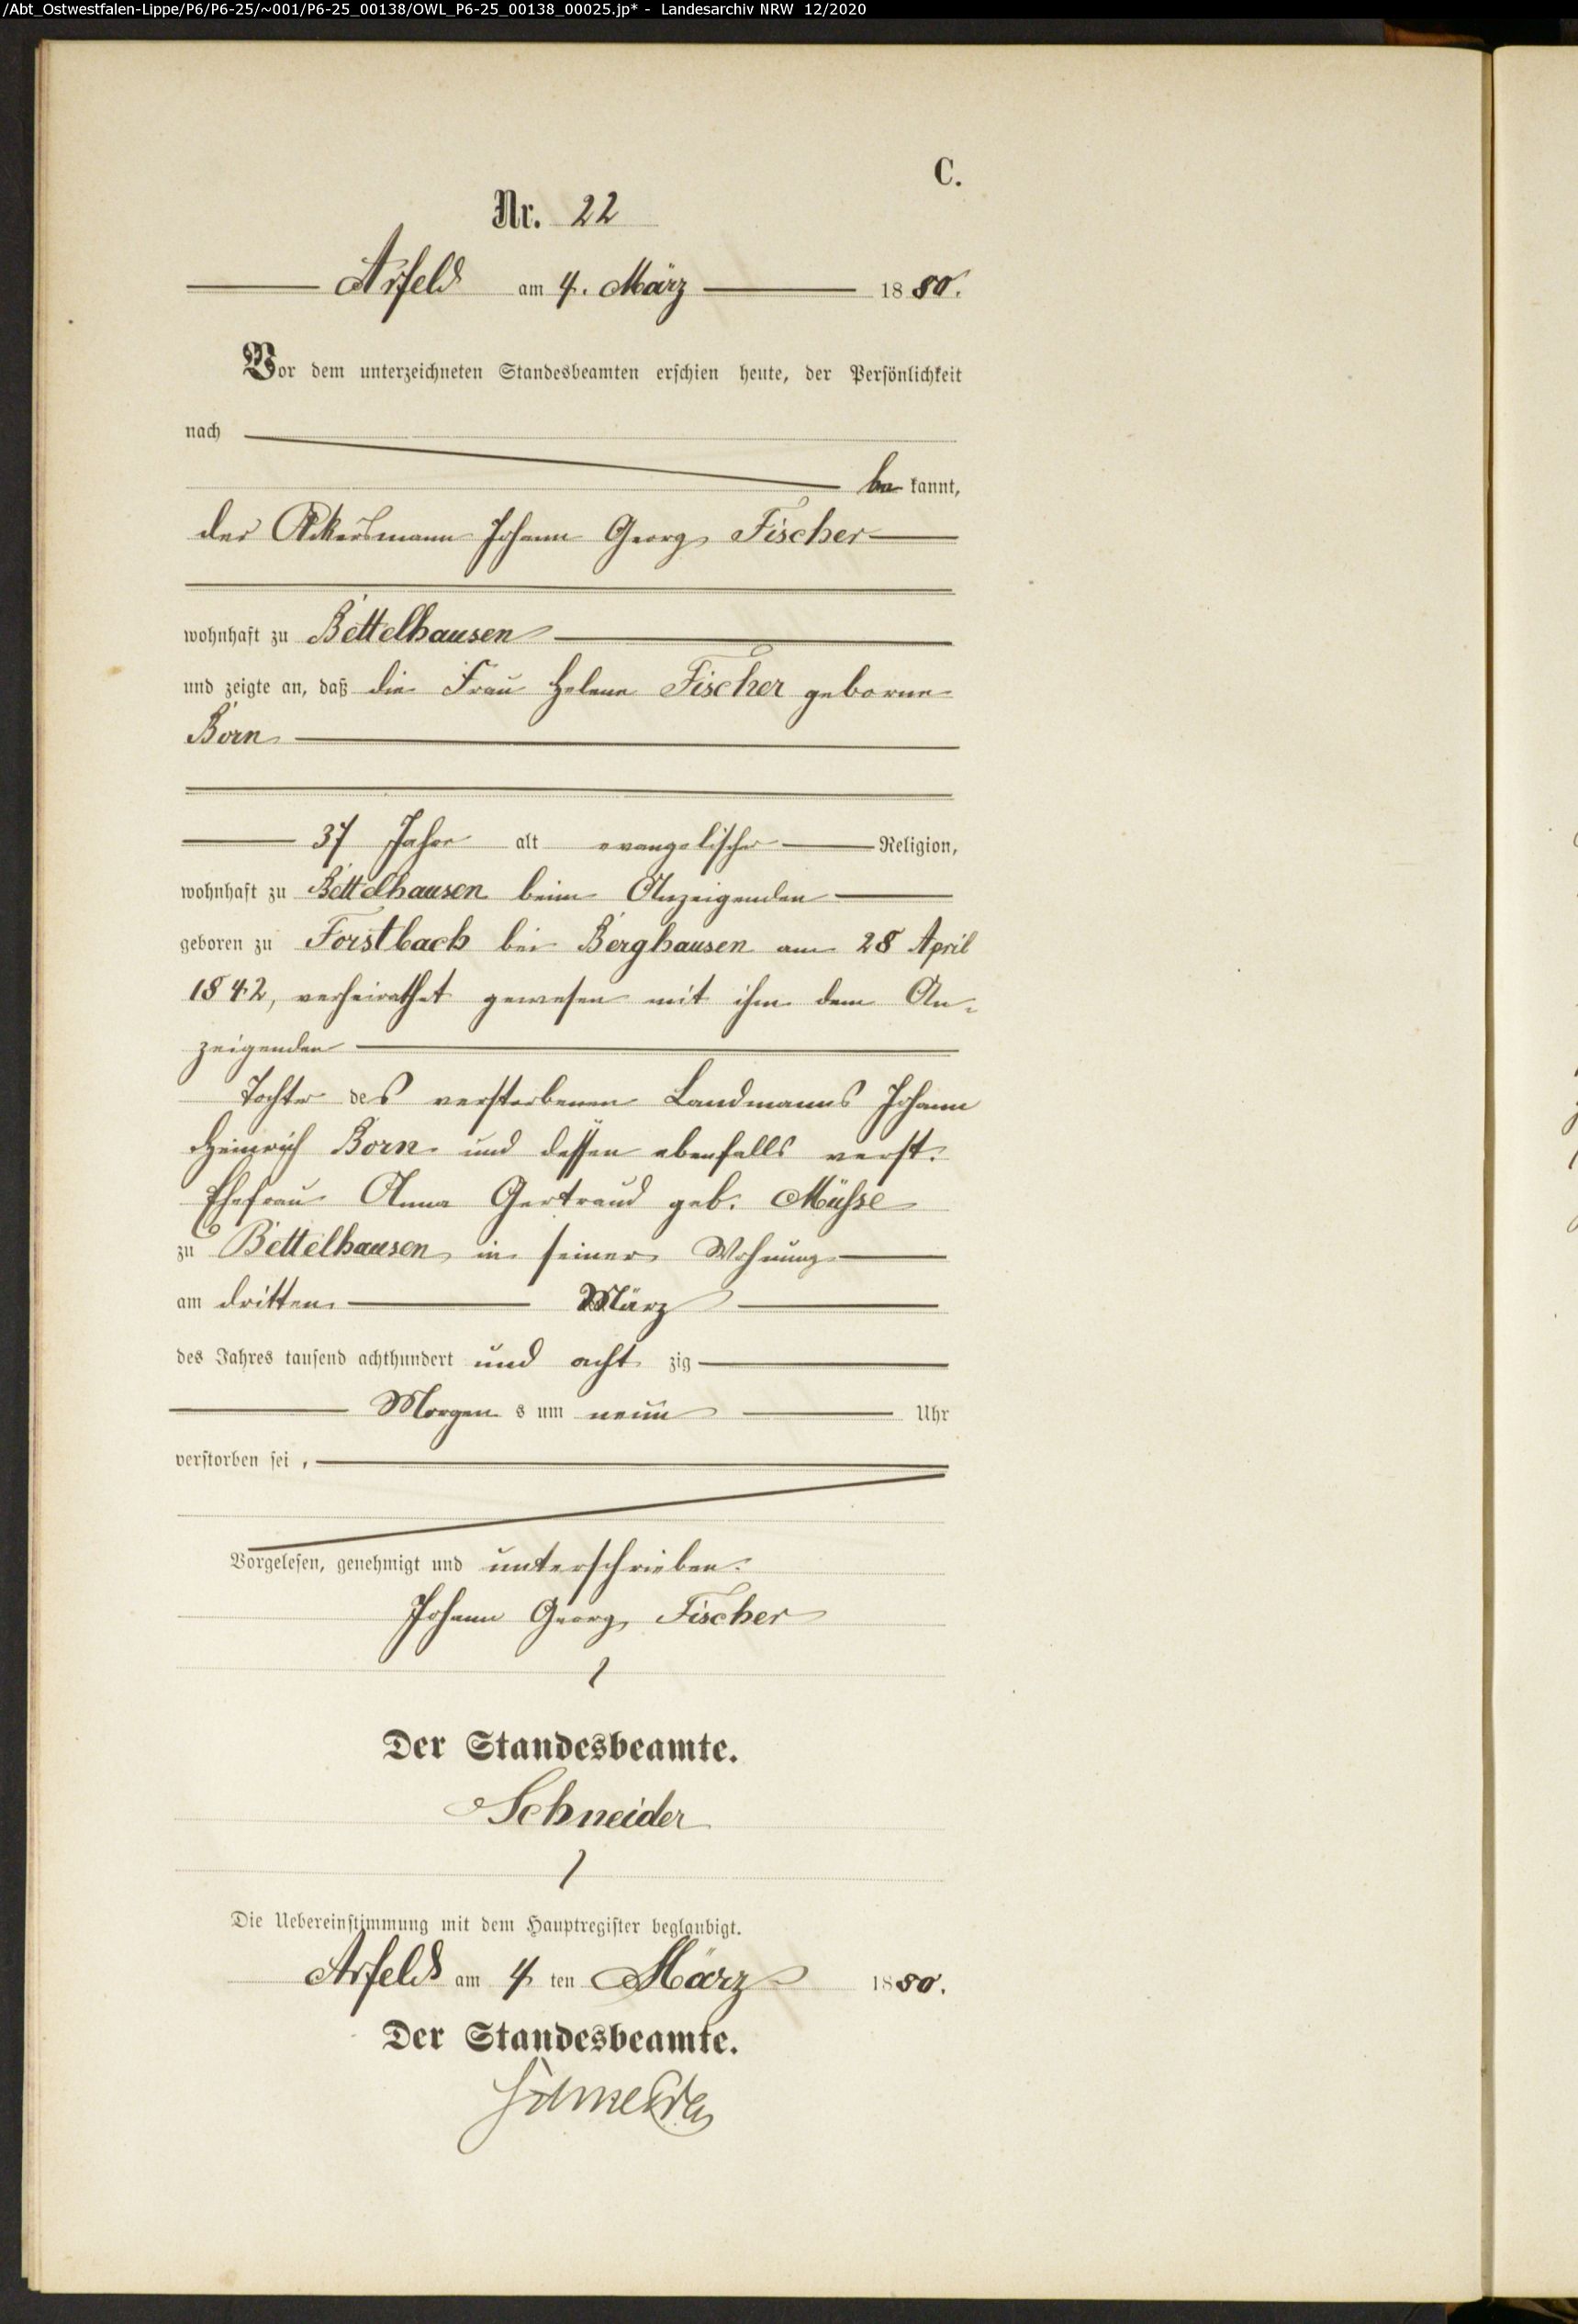 /Abt_Ostwestfalen-Lippe/P6/P6-25/~001/P6-25_00138/OWL_P6-25_00138_00025.jp* - Landesarchiv NRW 12/2020
C.
Nr. 22
Arfeld am 4. März 1880.
Vor dem unterzeichneten Standesbeamten erschien heute, der Persönlichkeit
nach
be kannt,
der Ackersmann Johann Georg Fischer
wohnhaft zu Bettelhausen
und zeigte an, daß die Frau Helene Fischer geborne
Born
37 Jahre alt evangelischer Religion,
wohnhaft zu Bettelhausen beim Anzeigenden
geboren zu Forstbach bei Berghausen am 28 April
1842, verheirathet gewesen mit ihm dem An-
zeigenden
Tochter des verstorbenen Landmanns Johann
Heinrich Born und dessen ebenfalls verst.
Ehefrau Anna Gertraud geb. Müsse
zu Bettelhausen in seiner Wohnung
am dritten März
des Jahres tausend achthundert und acht zig
Morgen s um neun Uhr
verstorben sei,
Vorgelesen, genehmigt und unterschrieben.
Johann Georg Fischer
Der Standesbeamte.
Schneider
Die Uebereinstimmung mit dem Hauptregister beglaubigt.
Arfeld am 4 ten März 1880.
Der Standesbeamte.
Schneider